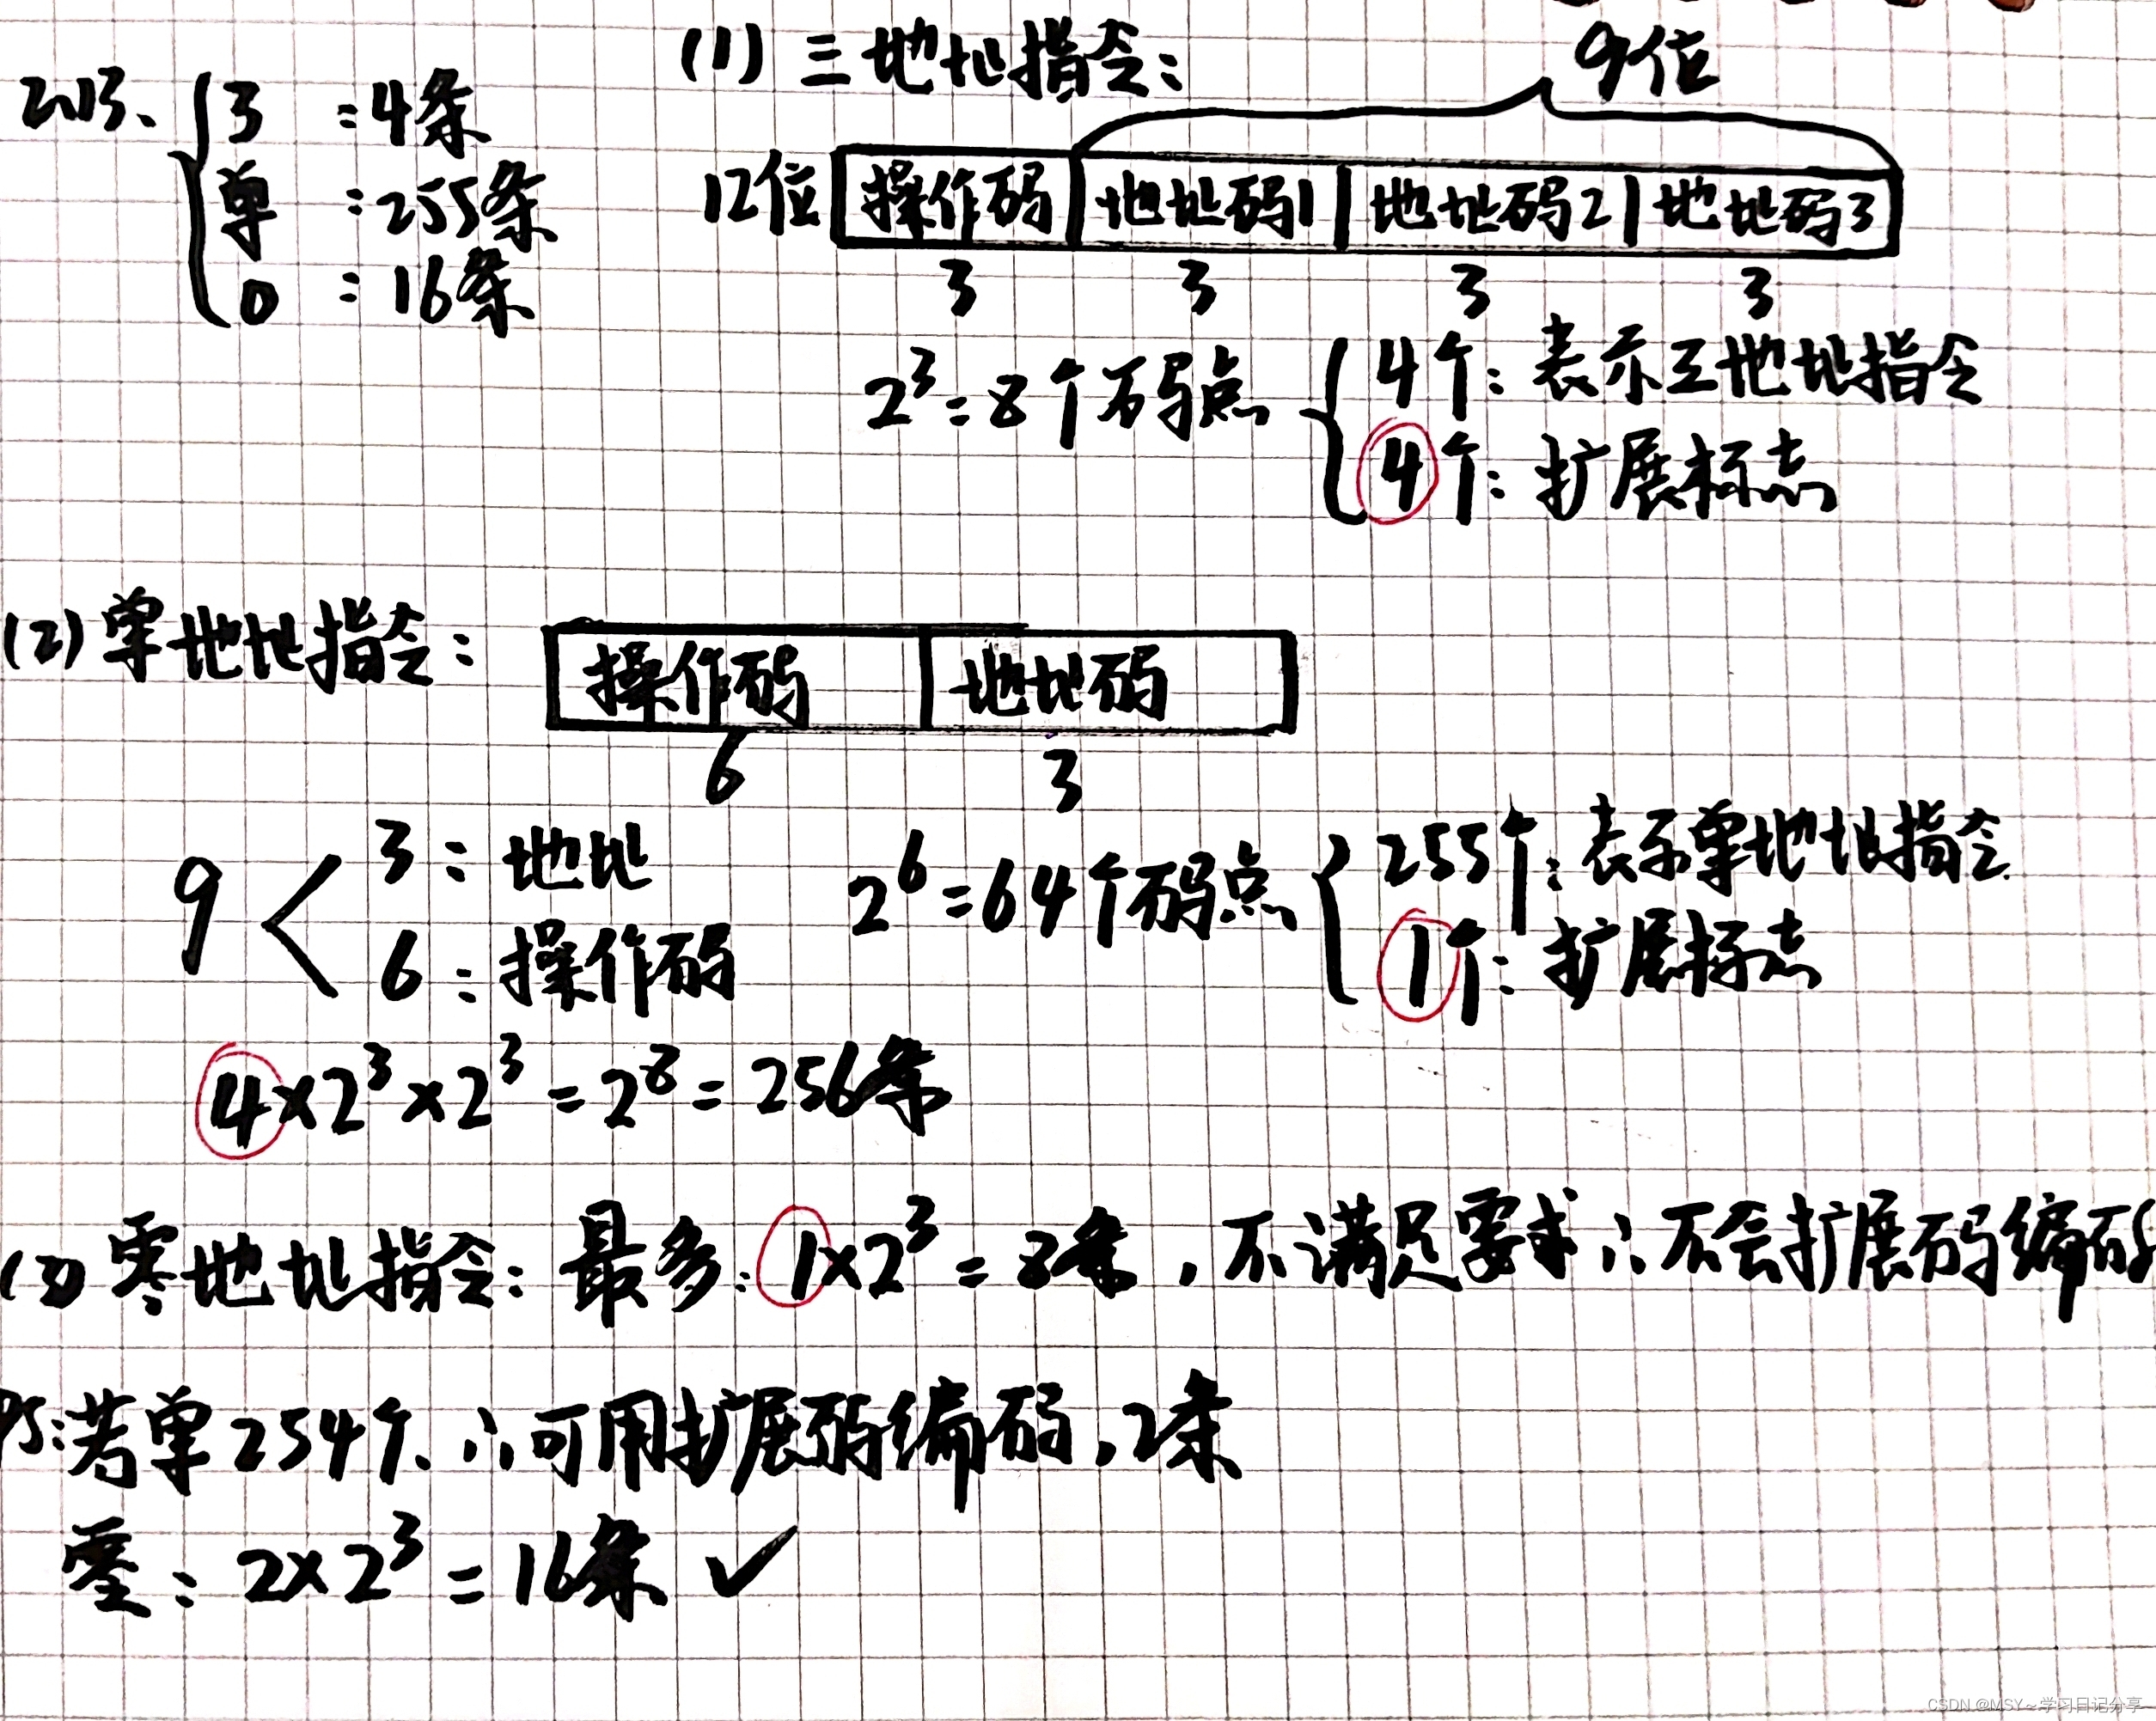 2013、
3 :4条
单 :255条
0 :16条
(1) 三地址指令:
9位
12位 操作码 地址码1 地址码2 地址码3
3 3 3 3
2³=8个码点
4个: 表示三地址指令
4个: 扩展标志
(2) 单地址指令:
操作码 地址码
6 3
9
3: 地址
6: 操作码
2⁶=64个码点
255个: 表示单地址指令
1个: 扩展标志
4×2³×2³=2⁸=256条
(3) 零地址指令: 最多: 1×2³=8条, 不满足要求 ∴不会扩展码编码
PS:若单254个、∴可用扩展码编码,2条
零: 2×2³=16条 ✓
CSDN @MSY~学习日记分享